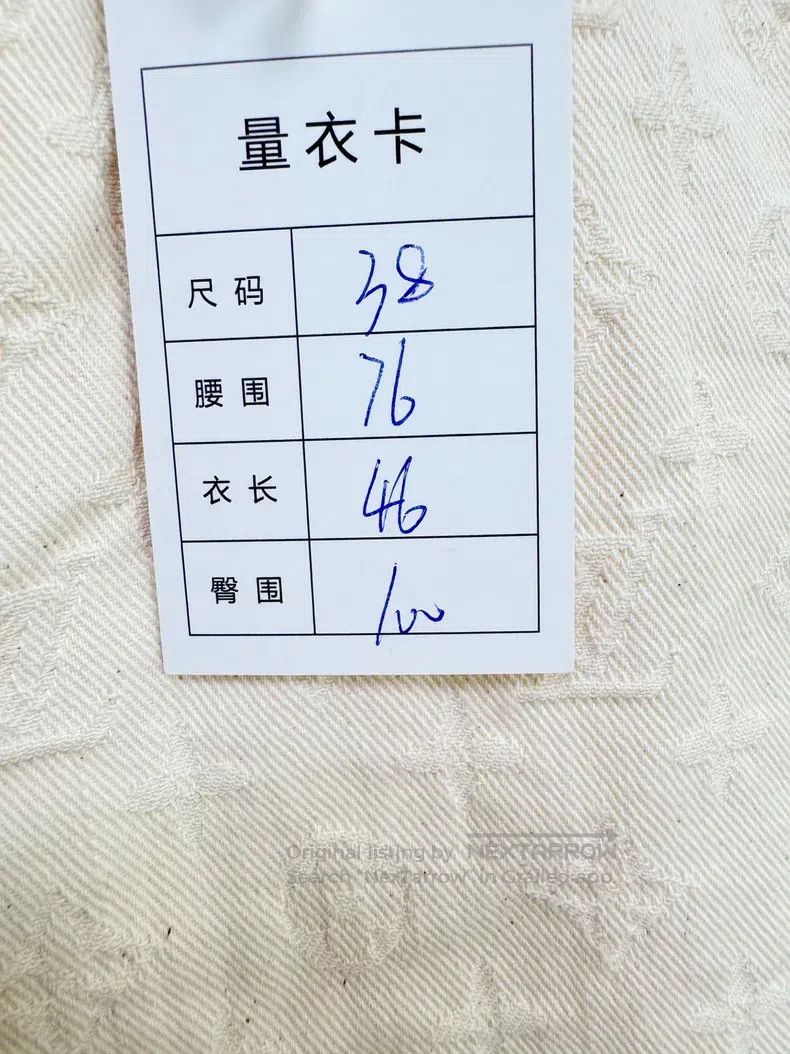 量衣卡
尺码 38
腰围 76
衣长 46
臀围 100
Original listing by NEXTARROW
Search "NexTarrow" in Grailed app